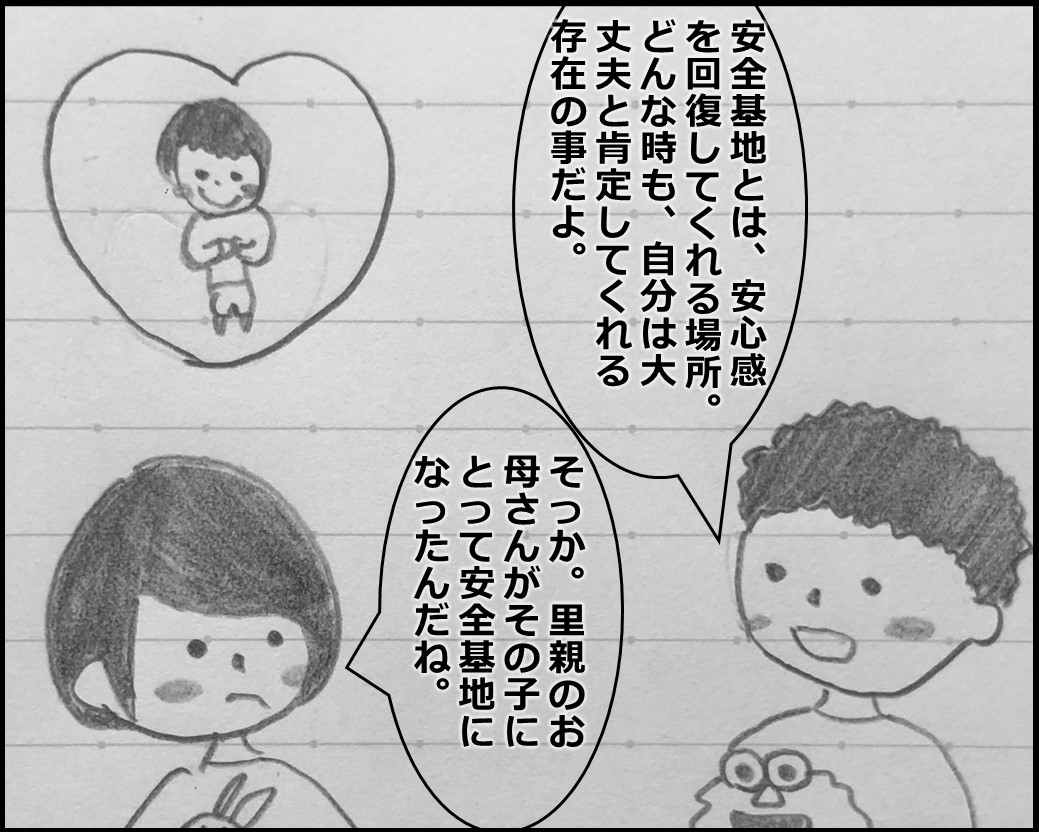 安全基地とは、安心感
を回復してくれる場所。
どんな時も、自分は大
丈夫と肯定してくれる
存在の事だよ。
そっか。里親のお
母さんがその子に
とって安全基地に
なったんだね。